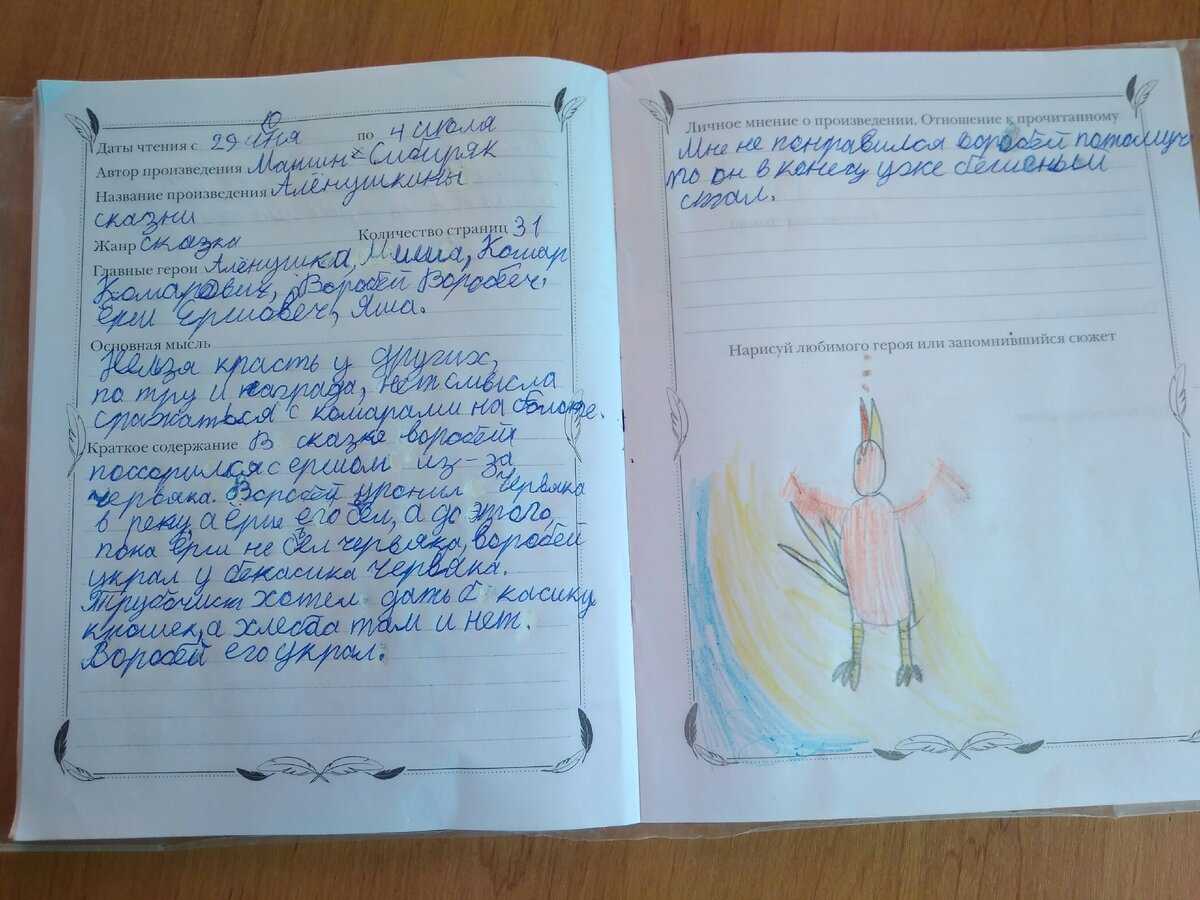 Даты чтения с 29 июня по 4 июля
Автор произведения Мамин-Сибиряк
Название произведения Алёнушкины
сказки
Жанр сказка Количество страниц 31
Главные герои Алёнушка, Миша, Комар
Комарович, Воробей Воробеч.
ёрш Ершовеч, Яша.
Основная мысль
Нельзя красть у других,
по тру и награда, нет смысла
сражаться с комарами на болоте.
Краткое содержание В сказке воробей
поссорился с ершом из-за
червяка. Воробей уронил червяка
в реку, а ёрш его сел, а до этого,
пока ёрш не сел червяка, воробей
украл у бекасика червяка.
Трубочист хотел дать бекасику
крошек, а хлеба там и нет.
Воробей его украл.
Личное мнение о произведении. Отношение к прочитанному
Мне не понравился воробей потомуч
то он в конецу уже бешеным
стал.
Нарисуй любимого героя или запомнившийся сюжет